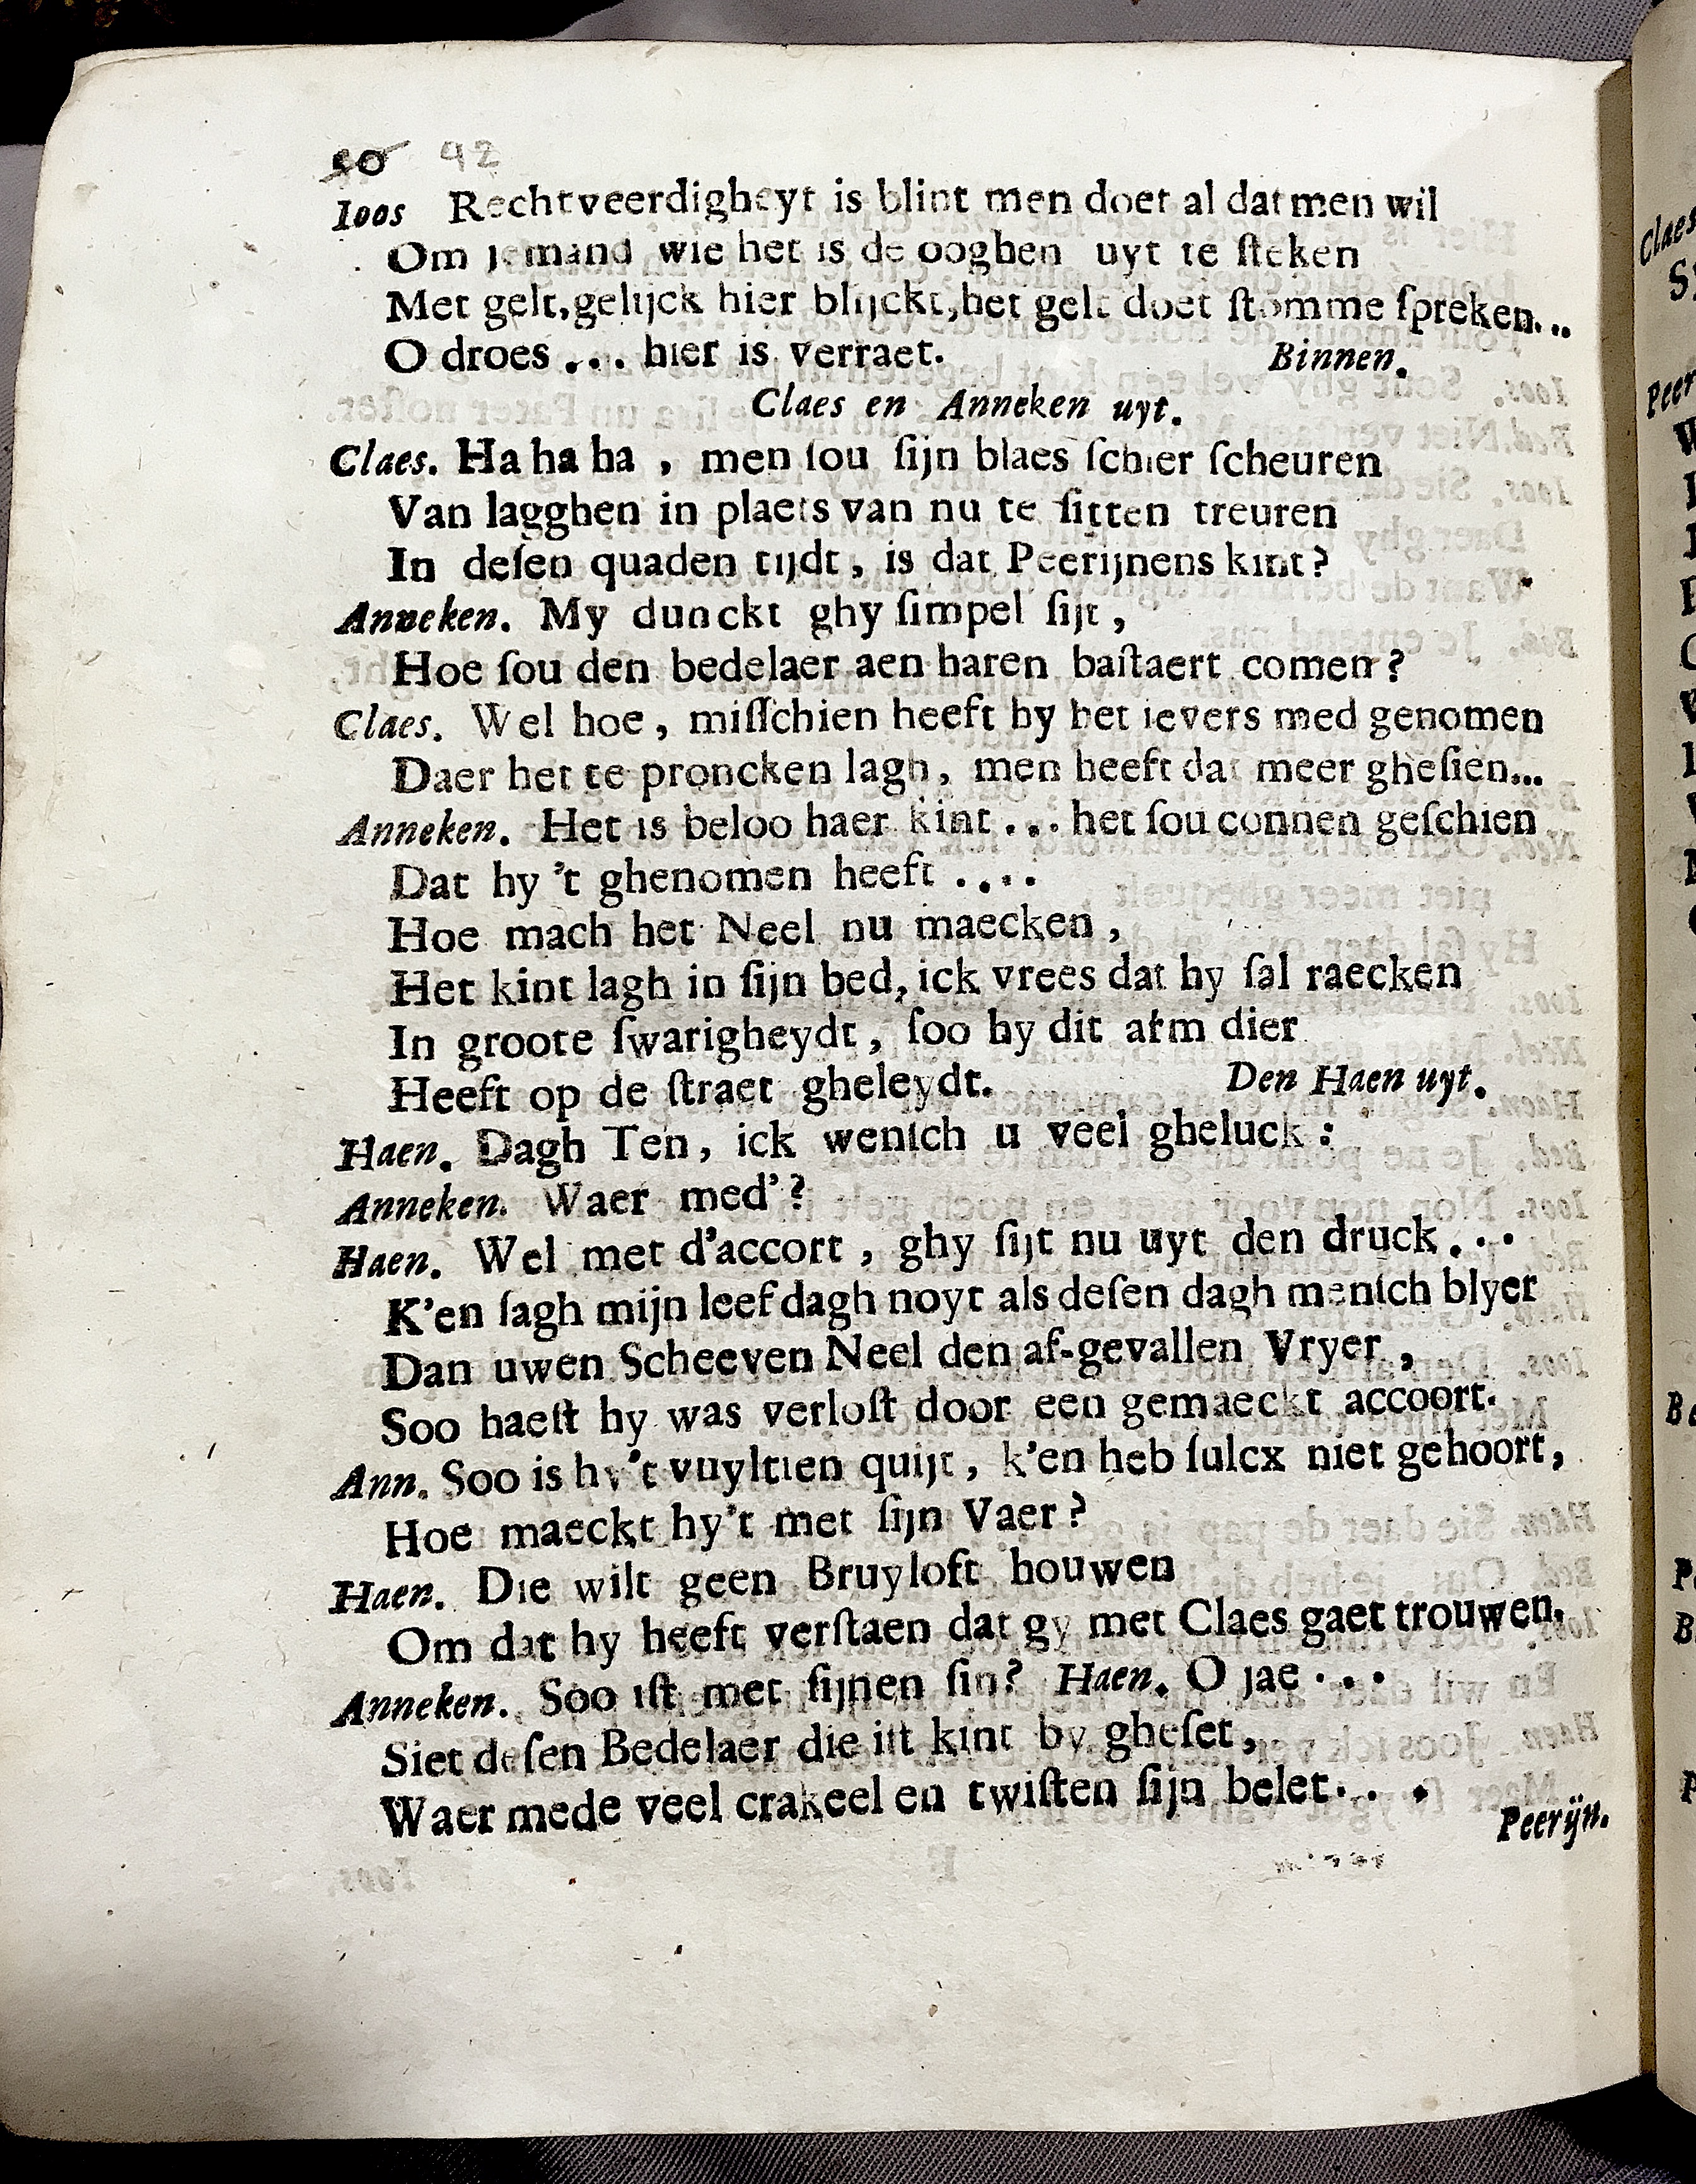 50 92
Ioos Rechtveerdigheyt is blint men doet al dat men wil
Om jemand wie het is de ooghen uyt te ſteken
Met gelt, gelijck hier blijckt, het gelt doet ſtomme ſpreken...
O droes ... hier is verraet. Binnen.
Claes en Anneken uyt.
Claes. Ha ha ha , men ſou ſijn blaes ſchier ſcheuren
Van lagghen in plaets van nu te ſitten treuren
In deſen quaden tijdt, is dat Peerijnens kint?
Anneken. My dunckt ghy ſimpel ſijt ,
Hoe ſou den bedelaer aen haren baſtaert comen?
Claes. Wel hoe, miſſchien heeft hy het ievers med genomen
Daer het te proncken lagh, men heeft dat meer gheſien...
Anneken. Het is beloo haer kint ... het ſou connen geſchien
Dat hy 't ghenomen heeft ....
Hoe mach het Neel nu maecken ,
Het kint lagh in ſijn bed, ick vrees dat hy ſal raecken
In groote ſwarigheydt, ſoo hy dit arm dier
Heeft op de ſtraet gheleydt. Den Haen uyt.
Haen. Dagh Ten, ick wenſch u veel gheluck :
Anneken. Waer med' ?
Haen. Wel met d'accort , ghy ſijt nu uyt den druck ...
K'en ſagh mijn leefdagh noyt als deſen dagh menſch blyer
Dan uwen Scheeven Neel den af-gevallen Vryer ,
Soo haeſt hy was verloſt door een gemaeckt accoort.
Ann. Soo is hy't vuyltien quijt, k'en heb ſulcx niet gehoort,
Hoe maeckt hy't met ſijn Vaer?
Haen. Die wilt geen Bruyloft houwen
Om dat hy heeft verſtaen dat gy met Claes gaet trouwen.
Anneken. Soo iſt met ſijnen ſin? Haen. O jae ...
Siet deſen Bedelaer die iſt kint by gheſet,
Waer mede veel crakeel en twiſten ſijn belet...
Peerijn.